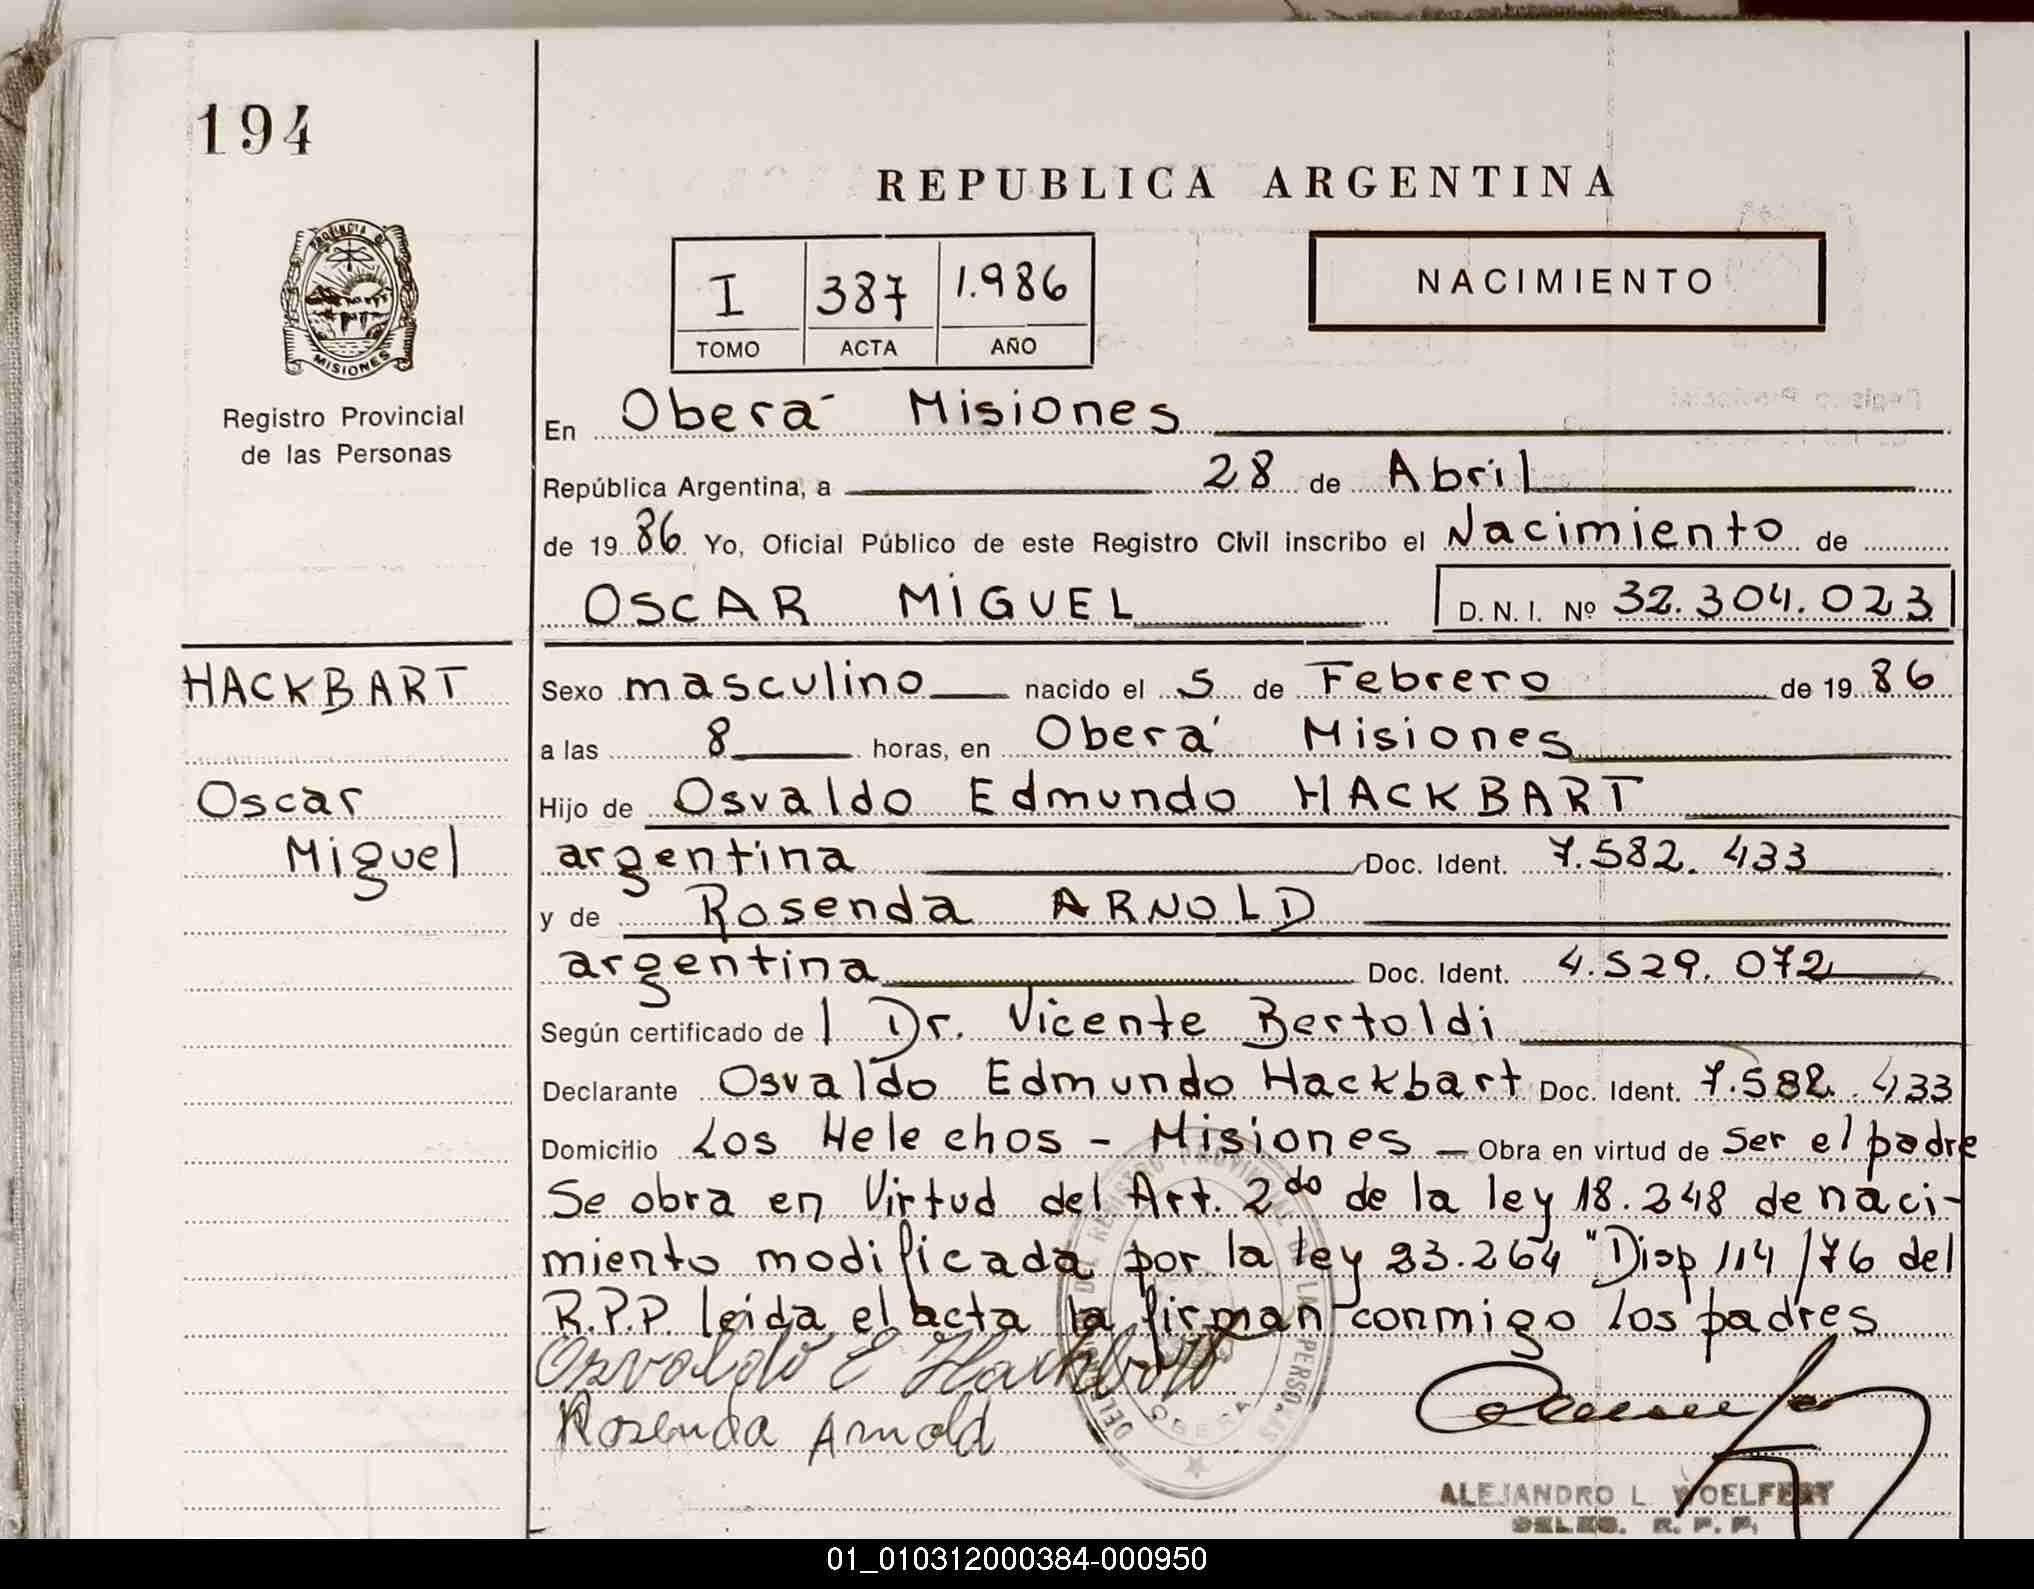 194
REPUBLICA ARGENTINA
PROVINCIA DE
MISIONES
Registro Provincial
de las Personas
I 387 1.986
TOMO ACTA AÑO
NACIMIENTO
En Oberá Misiones
República Argentina, a 28 de Abril
de 19 86 Yo, Oficial Público de este Registro Civil inscribo el Nacimiento de
OSCAR MIGUEL D. N. I. Nº 32.304.023
HACKBART
Oscar
Miguel
Sexo masculino nacido el 5 de Febrero de 19 86
a las 8 horas, en Oberá Misiones
Hijo de Osvaldo Edmundo HACKBART
argentina Doc. Ident. 7.582.433
y de Rosenda ARNOLD
argentina Doc. Ident. 4.529.072
Según certificado de l Dr. Vicente Bertoldi
Declarante Osvaldo Edmundo Hackbart Doc. Ident. 7.582.433
Domicilio Los Helechos - Misiones - Obra en virtud de ser el padre
Se obra en Virtud del Art. 2do de la ley 18.248 de naci-
miento modificada por la ley 23.264 "Disp 114/76 del
R.P.P. leida el acta la firman conmigo los padres
Osvaldo E Hackbart
Rosenda Arnold
REGISTRO PROVINCIAL DE LAS PERSONAS
OBERA
ALEJANDRO L. WOELFERT
DELEG. R. P. P.
01_010312000384-000950